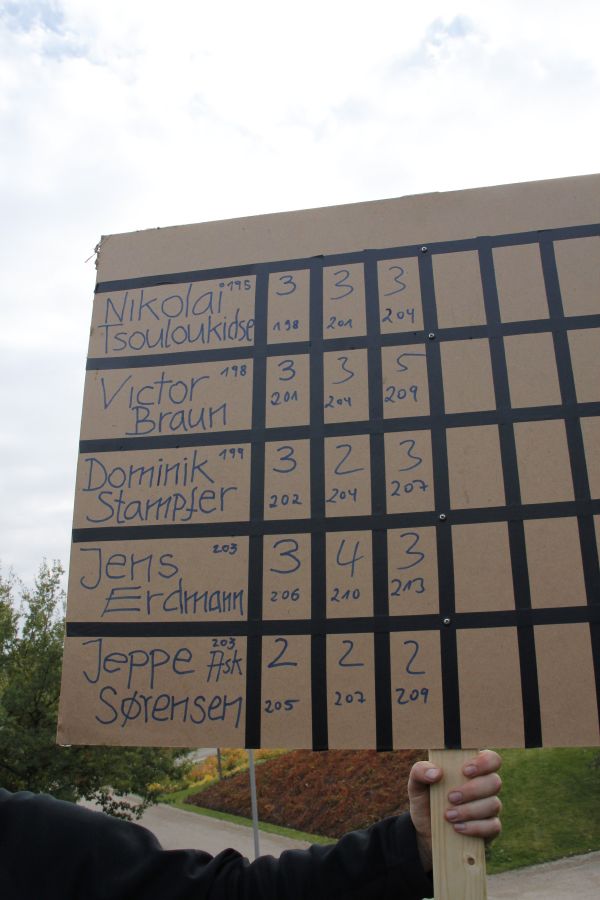 Nikolai 195 3 3 3
Tsouloukidse 198 201 204
Victor 198 3 3 5
Braun 201 204 209
Dominik 199 3 2 3
Stampfer 202 204 207
Jens 203 3 4 3
Erdmann 206 210 213
Jeppe Ask 203 2 2 2
Sørensen 205 207 209